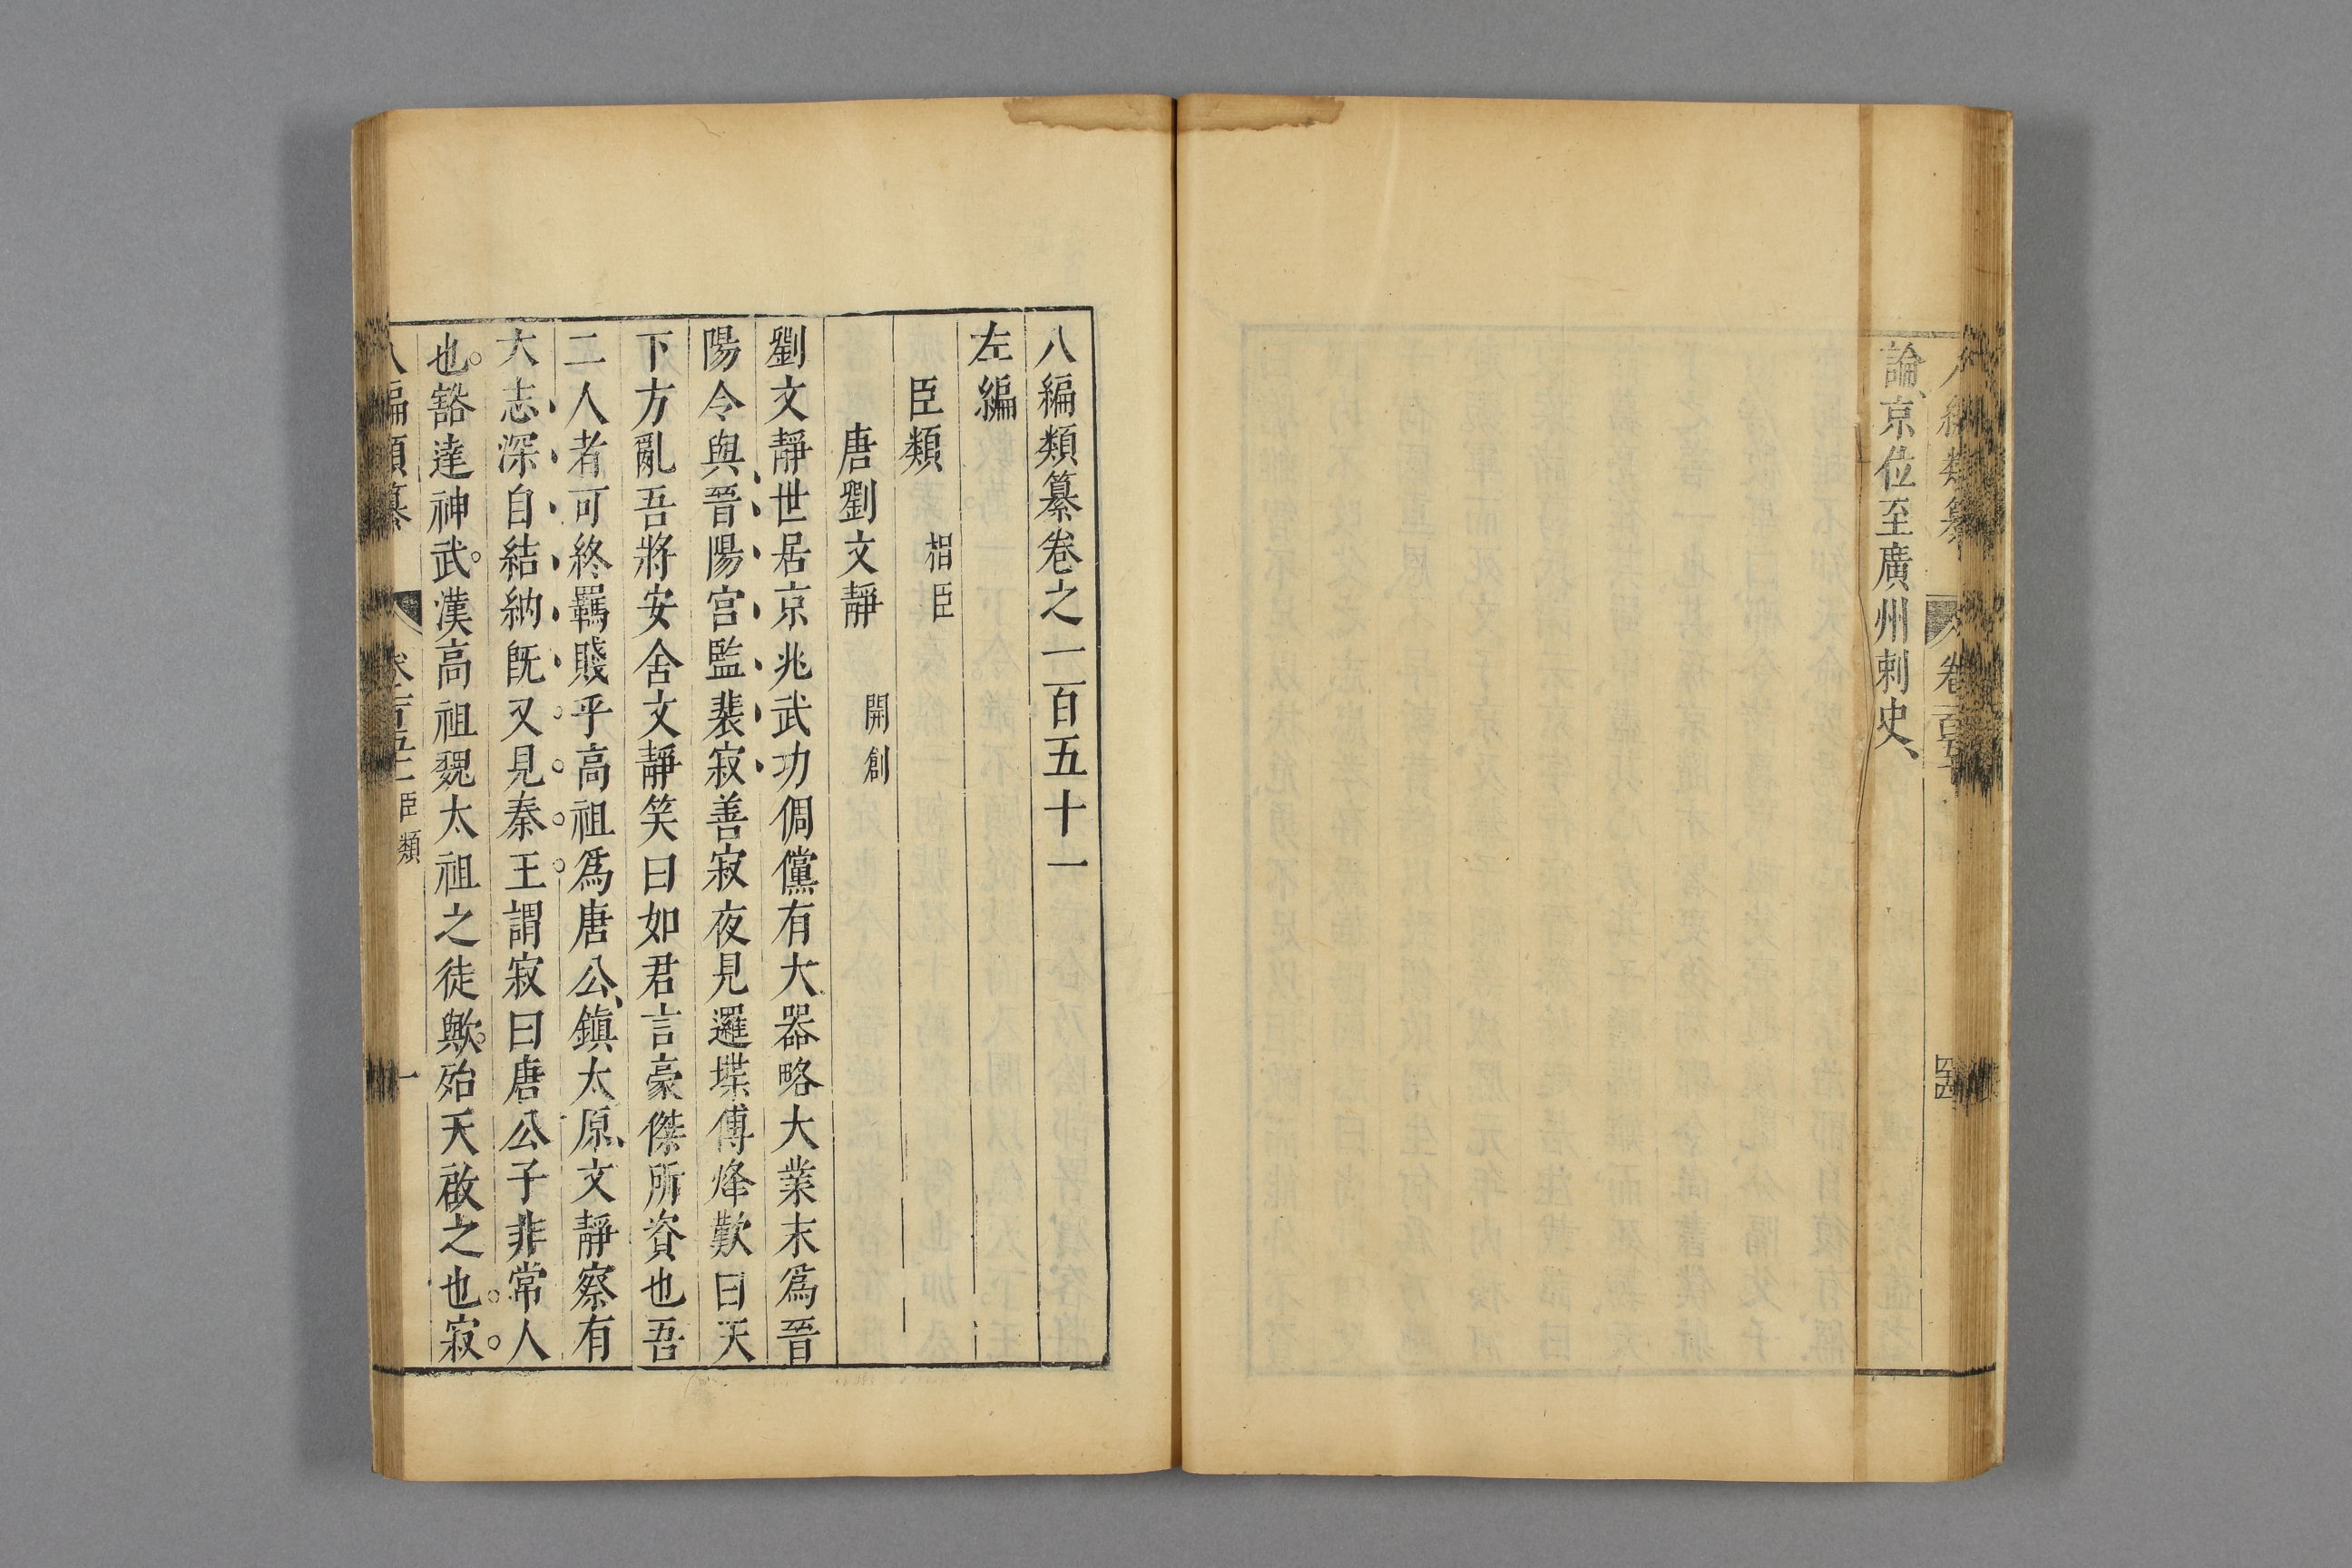 論、京位至廣州刺史、
八編類纂卷之一百五十一
左編
臣類 相臣
唐劉文靜 開創
劉文靜世居京兆武功倜儻有大器略大業末爲晉
陽令與晉陽宮監裴寂善寂夜見邏堞傳烽歎曰天
下方亂吾將安舍文靜笑曰如君言豪傑所資也吾
二人者可終羈賤乎高祖爲唐公、鎮太原、文靜察有
大志深自結納旣又見秦王謂寂曰唐公子非常人
也。豁達神武。漢高祖魏太祖之徒歟。殆天啟之也。寂
八編類纂 臣類 一